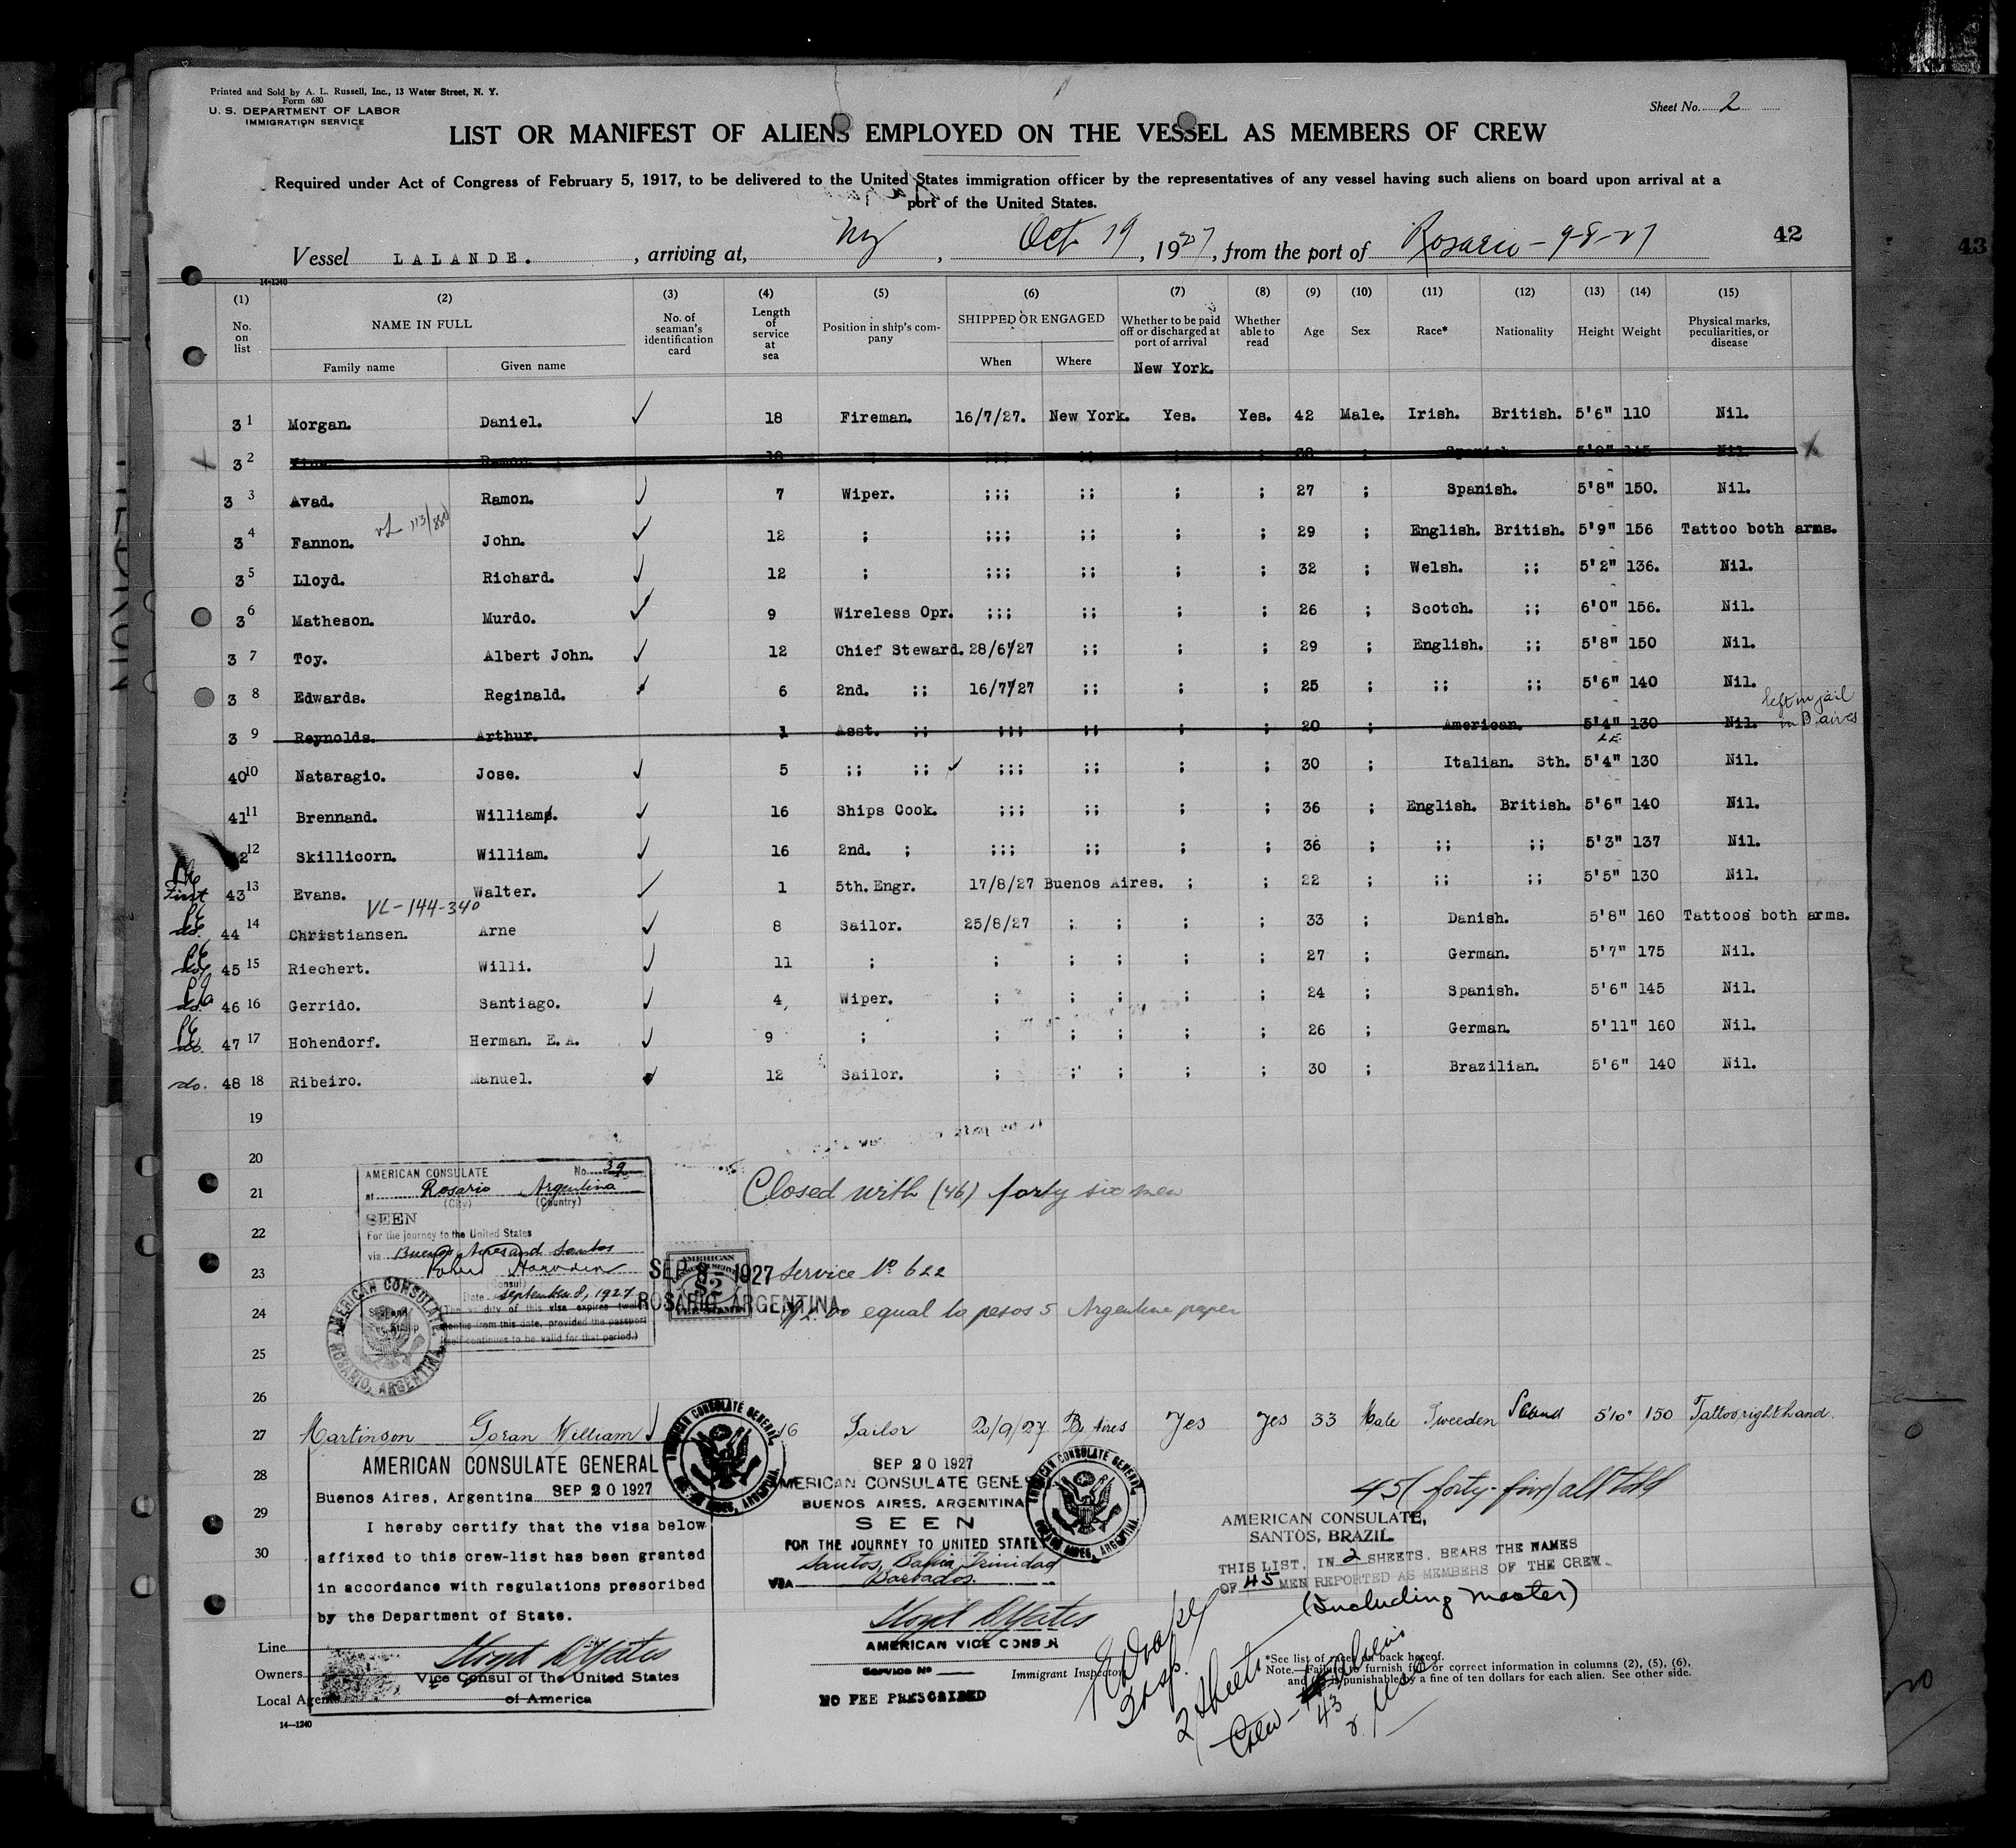 Printed and Sold by A. L. Russell, Inc., 13 Water Street, N. Y.
Form 680
U. S. DEPARTMENT OF LABOR
IMMIGRATION SERVICE
Sheet No. 2
LIST OR MANIFEST OF ALIENS EMPLOYED ON THE VESSEL AS MEMBERS OF CREW
Required under Act of Congress of February 5, 1917, to be delivered to the United States immigration officer by the representatives of any vessel having such aliens on board upon arrival at a
port of the United States.
Vessel LALANDE. , arriving at, Ny , Oct 19 , 1927, from the port of Rosario - 9-8-27
42
43
14-1240
(1) (2) (3) (4) (5) (6) (7) (8) (9) (10) (11) (12) (13) (14) (15)
No. on list NAME IN FULL Family name Given name No. of seaman's identification card Length of service at sea Position in ship's company SHIPPED OR ENGAGED When Where Whether to be paid off or discharged at port of arrival New York. Whether able to read Age Sex Race* Nationality Height Weight Physical marks, peculiarities, or disease
3 1 Morgan. Daniel. ✓ 18 Fireman. 16/7/27. New York. Yes. Yes. 42 Male. Irish. British. 5'6" 110 Nil.
x 3 2 Ramon. 18 ; ;;; ;; ; ; 38 ; Spanish. 5'8" 145 Nil. x
3 3 Avad. Ramon. ✓ 7 Wiper. ;;; ;; ; ; 27 ; Spanish. 5'8" 150. Nil.
3 4 Fannon. John. ✓ 12 ; ;;; ;; ; ; 29 ; English. British. 5'9" 156 Tattoo both arms.
3 5 Lloyd. Richard. ✓ 12 ; ;;; ;; ; ; 32 ; Welsh. ;; 5'2" 136. Nil.
3 6 Matheson. Murdo. ✓ 9 Wireless Opr. ;;; ;; ; ; 26 ; Scotch. ;; 6'0" 156. Nil.
3 7 Toy. Albert John. ✓ 12 Chief Steward. 28/6/27 ;; ; ; 29 ; English. ;; 5'8" 150 Nil.
3 8 Edwards. Reginald. ✓ 6 2nd. ;; 16/7/27 ;; ; ; 25 ; ;; ;; 5'6" 140 Nil.
left in jail
in B. aires
3 9 Reynolds. Arthur. 1 Asst. ;; ;;; ;; ; ; 20 ; American. 5'4" 130 Nil.
40 10 Nataragio. Jose. ✓ 5 ;; ;; ✓ ;;; ;; ; ; 30 ; Italian. Sth. 5'4" 130 Nil.
41 11 Brennand. Williams. ✓ 16 Ships Cook. ;;; ;; ; ; 36 ; English. British. 5'6" 140 Nil.
42 12 Skillicorn. William. ✓ 16 2nd. ; ;;; ;; ; ; 36 ; ;; ;; 5'3" 137 Nil.
First 43 13 Evans. Walter. ✓ 1 5th. Engr. 17/8/27 Buenos Aires. ; ; 22 ; ;; ;; 5'5" 130 Nil.
VL-144-340
do. 44 14 Christiansen. Arne ✓ 8 Sailor. 25/8/27 ; ; ; ; 33 ; Danish. 5'8" 160 Tattoos both arms.
do. 45 15 Riechert. Willi. ✓ 11 ; ; ; ; ; ; 27 ; German. 5'7" 175 Nil.
do. 46 16 Gerrido. Santiago. ✓ 4, Wiper. ; ; ; ; ; 24 ; Spanish. 5'6" 145 Nil.
do. 47 17 Hohendorf. Herman. E.A. ✓ 9 ; ; ; ; ; ; 26 ; German. 5'11" 160 Nil.
do. 48 18 Ribeiro. Manuel. ✓ 12 Sailor. ; ; ; ; ; 30 ; Brazilian. 5'6" 140 Nil.
19
20
21
22
23
24
25
26
AMERICAN CONSULATE No. 39
at Rosario Argentina
(City) (Country)
SEEN
For the journey to the United States
via Buenos Aires and Santos
(Consul)
Date September 8, 1927
(The validity of this visa expires twelve
months from this date, provided the passport
itself continues to be valid for that period.)
AMERICAN CONSULATE. ROSARIO, ARGENTINA
Closed with (46) forty six men
SEP 8 - 1927
ROSARIO, ARGENTINA
AMERICAN
$2
Service No 622
$2.00 equal to pesos 5 Argentine paper
27 Martinson Goran William ✓ 16 Sailor 20/9/27 B. Aires Yes Yes 33 Male Sweeden Scand 5'10" 150 Tattoo right hand.
28
29
30
AMERICAN CONSULATE GENERAL
Buenos Aires, Argentina SEP 20 1927
I hereby certify that the visa below
affixed to this crew-list has been granted
in accordance with regulations prescribed
by the Department of State.
Lloyd D Yates
Vice Consul of the United States
of America
AMERICAN CONSULATE GENERAL BUENOS AIRES, ARGENTINA
SEP 20 1927
AMERICAN CONSULATE GENE
BUENOS AIRES, ARGENTINA
SEEN
FOR THE JOURNEY TO UNITED STATE
Santos, Bahia, Trinidad
VIA Barbados.
Lloyd D Yates
AMERICAN VICE CONSUL
Service No
NO FEE PRESCRIBED
AMERICAN CONSULATE GENERAL BUENOS AIRES, ARGENTINA
45 (forty-five) all told
AMERICAN CONSULATE,
SANTOS, BRAZIL.
THIS LIST, IN 2 SHEETS, BEARS THE NAMES
OF 45 MEN REPORTED AS MEMBERS OF THE CREW.
(including master)
Line
Owners
Local Agents
14-1240
Immigrant Inspector
Insp.
2 sheets
Crew - Aliens
43
*See list of races on back hereof.
Note.—Failure to furnish full or correct information in columns (2), (5), (6),
and is punishable by a fine of ten dollars for each alien. See other side.